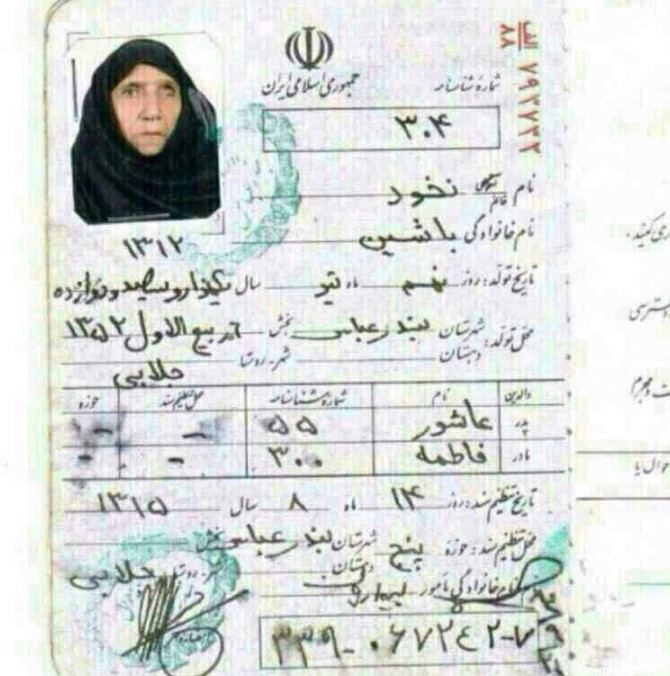 جمهوری اسلامی ایران
شماره شناسنامه
۳۰۴
نام نخود
خانم
نام خانوادگی باشین
۱۳۱۲
تاریخ تولد: روز نهم ماه تیر سال یکهزار و سیصد و دوازده
محل تولد: شهرستان بندرعباس بخش ربیع الاول ۱۳۵۲
دهستان شهر-روستا جلابی
والدین نام شماره شناسنامه محل تنظیم سند حوزه
پدر عاشور ۵۵ - -
مادر فاطمه ۳۰۰ - -
تاریخ تنظیم سند: روز ۱۴ ماه ۸ سال ۱۳۱۵
محل تنظیم سند: حوزه پنج شهرستان بندرعباس بخش
دهستان شهر-روستا جلابی
نام خانوادگی مامور
۳۳۹-۰۶۷۲۴۲-۷